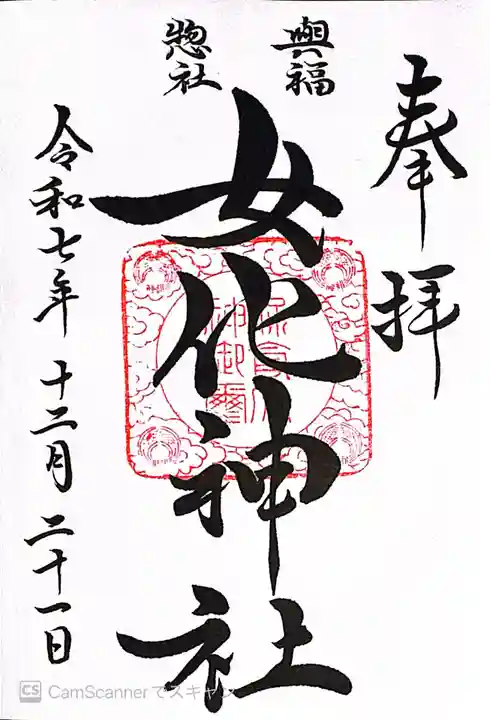 奉拝
興福
惣社
女化神社
令和七年 十二月 二十一日
CS CamScannerでスキャン